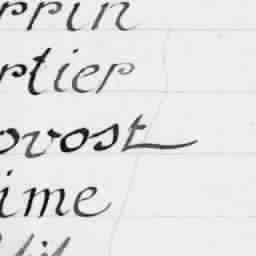 rrin
rtier
ovost
ime